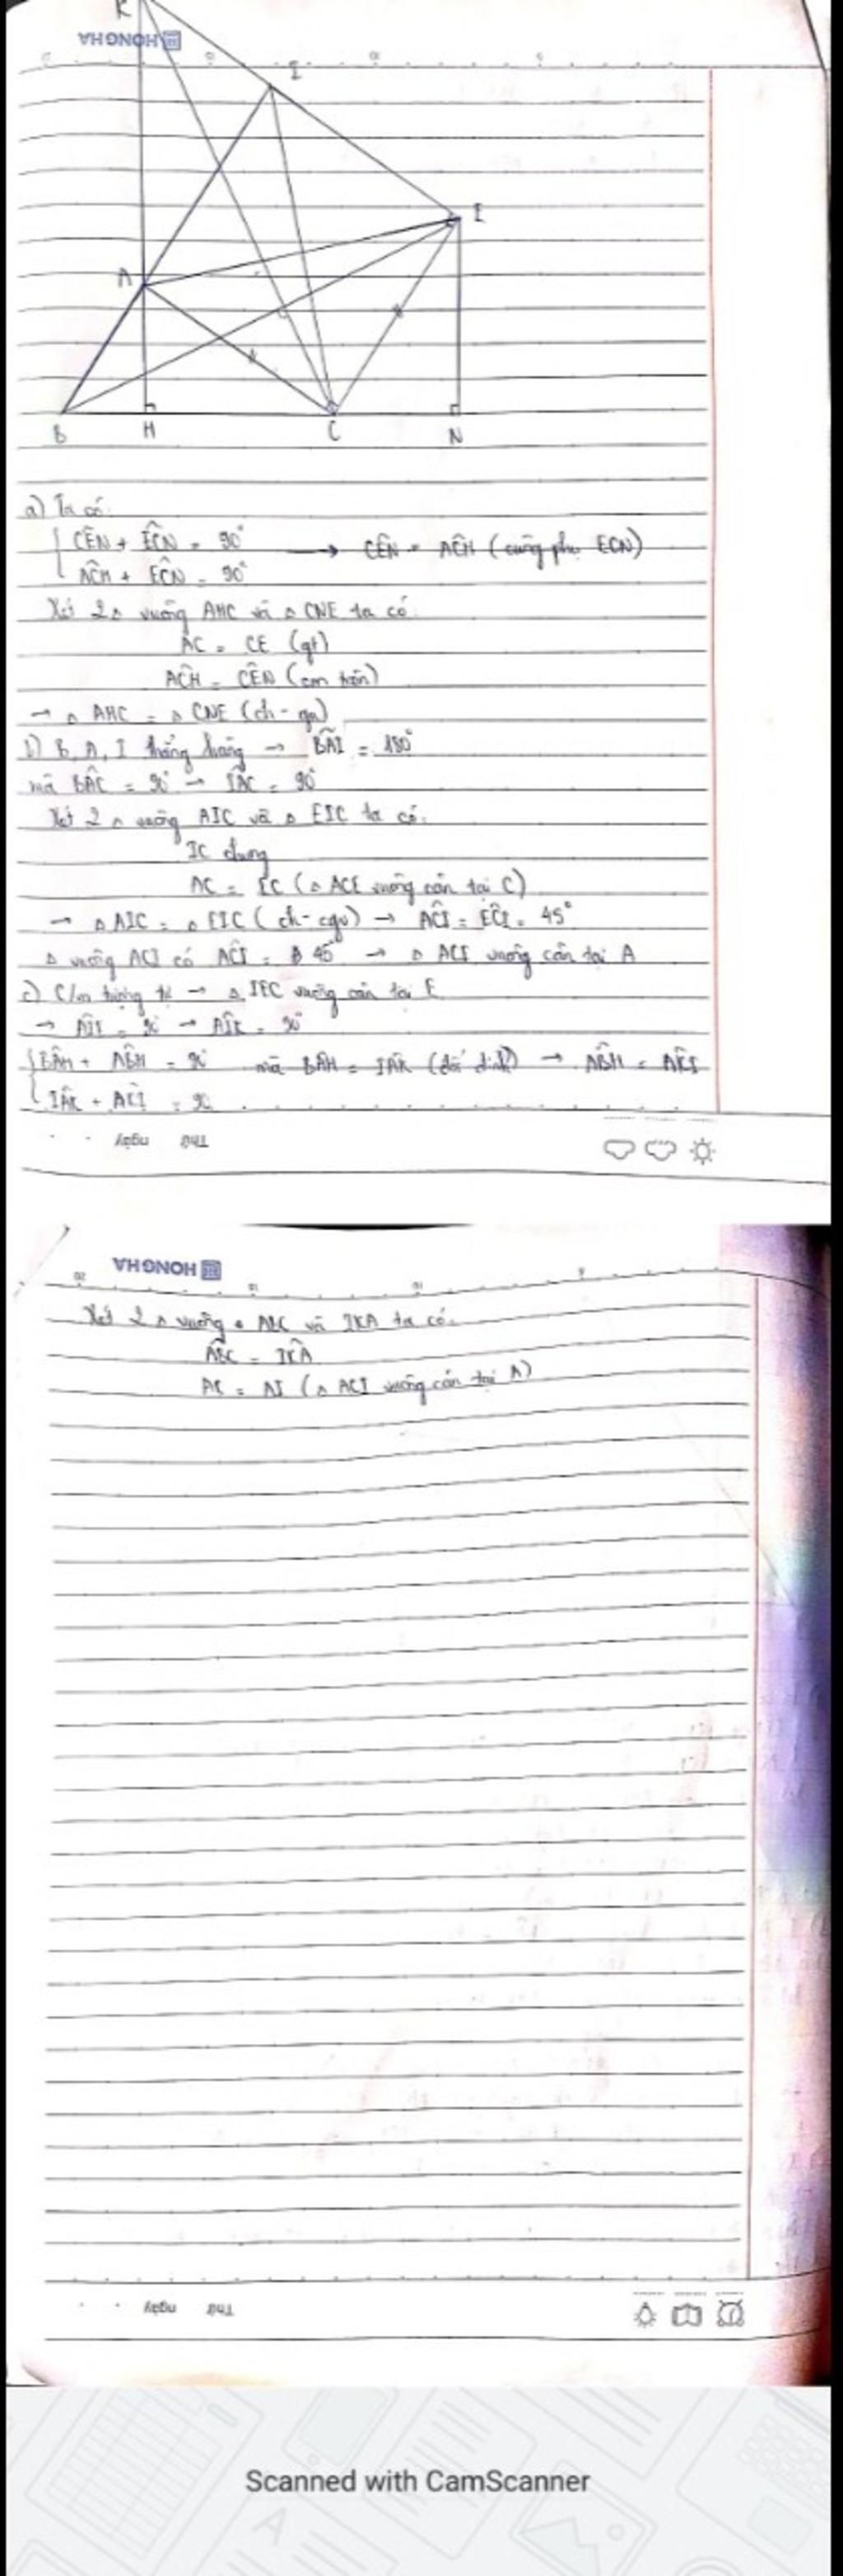 K
HONG HA
I
E
A
B H C N
a) Ta có
CÊN + ÊCN = 90°
→ CÊN = ACH (cùng phụ ECN)
ACH + ECN = 90°
Xét 2Δ vuông AHC và Δ CNE ta có:
AC = CE (gt)
ACH = CEN (cm trên)
→ Δ AHC = Δ CNE (ch - gn)
B, A, I thẳng hàng → BAI = 180°
mà BAC = 90° → IAC = 90°
Xét 2 Δ vuông AIC và Δ EIC ta có:
IC chung
AC = EC (Δ ACE vuông cân tại C)
→ Δ AIC = Δ EIC (ch - cgv) → ACI = ECI = 45°
Δ vuông ACI có ACI = 45° → Δ ACI vuông cân tại A
c) C/m tương tự → Δ IEC vuông cân tại E
→ AIE = 90° → AIK = 90°
BAH + ABH = 90° mà BAH = IAK (đối đỉnh) → ABH = AKI
IAK + AKI = 90
Thứ ngày
HONG HA
Xét 2 Δ vuông ABC và IKA ta có:
ABC = IKA
AC = AI (Δ ACI vuông cân tại A)
Thứ ngày
Scanned with CamScanner